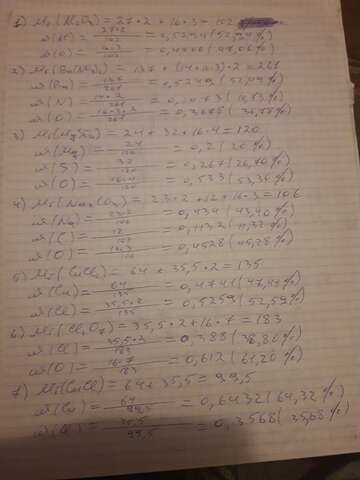 1) Mr(Al2O3) = 27·2 + 16·3 = 102
w(Al) = 27·2/102 = 0,5294 (52,94%)
w(O) = 16·3/102 = 0,4706 (47,06%)
2) Mr(Ba(NO3)2) = 137 + (14+16·3)·2 = 261
w(Ba) = 137/261 = 0,5249 (52,49%)
w(N) = 14·2/261
w(O) = 16·3·2/261 = 0,3678 (36,78%)
3) Mr(MgSO4) = 24 + 32 + 16·4 = 120
w(Mg) = 24/120 = 0,2 (20%)
w(S) = 32/120 = 0,267 (26,70%)
w(O) = 16·4/120 = 0,533 (53,30%)
4) Mr(Na2CO3) = 23·2 + 12 + 16·3 = 106
w(Na) = 23·2/106 = 0,434 (43,40%)
w(C) = 12/106 = 0,1132 (11,32%)
w(O) = 16·3/106 = 0,4528 (45,28%)
5) Mr(CuCl2) = 64 + 35,5·2 = 135
w(Cu) = 64/135 = 0,4741 (47,41%)
w(Cl) = 35,5·2/135 = 0,5259 (52,59%)
6) Mr(Cl2O7) = 35,5·2 + 16·7 = 183
w(Cl) = 35,5·2/183 = 0,388 (38,80%)
w(O) = 16·7/183 = 0,612 (61,20%)
7) Mr(CuCl) = 64 + 35,5 = 99,5
w(Cu) = 64/99,5 = 0,6432 (64,32%)
w(Cl) = 35,5/99,5 = 0,3568 (35,68%)